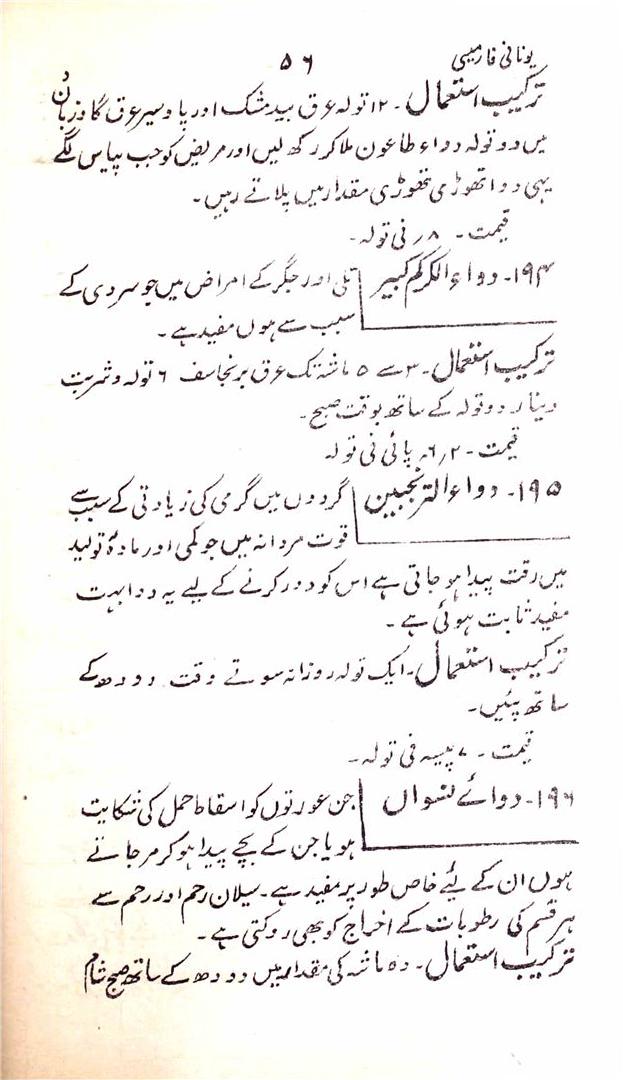 یونانی فارمیسی
۵۶
ترکیب استعمال۔ ۱۲ تولہ عرق بید مشک اور پاوسیر عرق گاوزبان
میں دو تولہ دواء طاعون ملاکر رکھ لیں اور مریض کو جب پیاس لگے
یہی دوا تھوڑی تھوڑی مقدار میں پلاتے رہیں۔
قیمت۔ ۸ر فی تولہ۔
۱۹۴۔ دواء الکرکم کبیر
تلی اور جگر کے امراض میں جو سردی کے
سبب سے ہوں مفید ہے۔
ترکیب استعمال۔ ۳ سے ۵ ماشہ تک عرق برنجاسف ۶ تولہ و شربت
دینار دو تولہ کے ساتھ بوقت صبح۔
قیمت۔ ۲ر۶ پائی فی تولہ
۱۹۵۔ دواء الترنجبین
گردوں میں گرمی کی زیادتی کے سبب سے
قوت مردانہ میں جو کمی اور مادۂ تولید
میں رقت پیدا ہو جاتی ہے اس کو دور کرنے کے لیے یہ دوا بہت
مفید ثابت ہوئی ہے۔
ترکیب استعمال۔ ایک تولہ روزانہ سوتے وقت دودھ کے
ساتھ پئیں۔
قیمت۔ ۷ پیسہ فی تولہ۔
۱۹۶۔ دوائے نسواں
جن عورتوں کو اسقاط حمل کی شکایت
ہو یا جن کے بچے پیدا ہو کر مر جاتے
ہوں ان کے لیئے خاص طور پر مفید ہے۔ سیلان رحم اور رحم سے
ہر قسم کی رطوبات کے اخراج کو بھی روکتی ہے۔
ترکیب استعمال۔ ۵ ماشہ کی مقدار میں دودھ کے ساتھ صبح شام